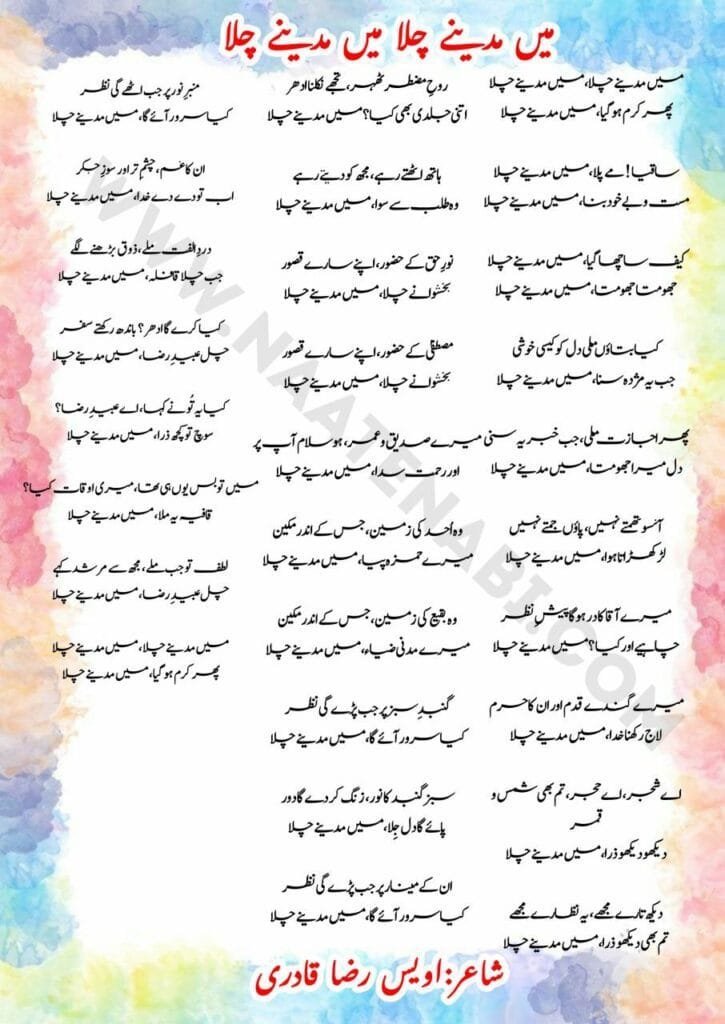 میں مدینے چلا میں مدینے چلا
میں مدینے چلا، میں مدینے چلا
پھر کرم ہو گیا، میں مدینے چلا
ساقیا! مے پلا، میں مدینے چلا
مست و بے خود بنا، میں مدینے چلا
کیف سا چھا گیا، میں مدینے چلا
جھومتا جھومتا، میں مدینے چلا
کیا بتاؤں ملی دل کو کیسی خوشی
جب یہ مژدہ سنا، میں مدینے چلا
پھر اجازت ملی، جب خبر یہ سنی
دل میرا جھومتا، میں مدینے چلا
آنسو تھمتے نہیں، پاؤں جمتے نہیں
لڑکھڑاتا ہوا، میں مدینے چلا
میرے آقا کا در ہوگا پیشِ نظر
چاہیے اور کیا؟ میں مدینے چلا
میرے گندے قدم اور ان کا حرم
لاج رکھنا خدا، میں مدینے چلا
اے شجر، اے حجر، تم بھی شمس و
قمر
دیکھو دیکھو ذرا، میں مدینے چلا
دیکھ تارے مجھے، یہ نظارے مجھے
تم بھی دیکھو ذرا، میں مدینے چلا
روحِ مضطر ٹھہر، تجھے نکلنا ادھر
اتنی جلدی بھی کیا؟ میں مدینے چلا
ہاتھ اٹھتے رہے، مجھ کو دیتے رہے
وہ طلب سے سوا، میں مدینے چلا
نورِ حق کے حضور، اپنے سارے قصور
بخشوانے چلا، میں مدینے چلا
مصطفیٰ کے حضور، اپنے سارے قصور
بخشوانے چلا، میں مدینے چلا
میرے صدیق و عمر، ہو سلام آپ پر
اور رحمت سدا، میں مدینے چلا
وہ اُحد کی زمین، جس کے اندر مکین
میرے حمزہ پیا، میں مدینے چلا
وہ بقیع کی زمین، جس کے اندر مکین
میرے مدنی ضیاء، میں مدینے چلا
گنبدِ سبز پر جب پڑے گی نظر
کیا سرور آئے گا، میں مدینے چلا
سبز گنبد کا نور، زنگ کر دے گا دور
پائے گا دل جِلا، میں مدینے چلا
ان کے مینار پر جب پڑے گی نظر
کیا سرور آئے گا، میں مدینے چلا
منبرِ نور پر جب اٹھے گی نظر
کیا سرور آئے گا، میں مدینے چلا
ان کا غم، چشمِ تر اور سوزِ جگر
اب تو دے دے خدا، میں مدینے چلا
دردِ الفت ملے، ذوق بڑھنے لگے
جب چلا قافلہ، میں مدینے چلا
کیا کرے گا ادھر؟ باندھ رختے سفر
چل عبیدِ رضا، میں مدینے چلا
کیا یہ تُو نے کہا، اے عبیدِ رضا؟
سوچ تو کچھ ذرا، میں مدینے چلا
میں تو بس یوں ہی تھا، میری اوقات کیا؟
قافیہ یہ ملا، میں مدینے چلا
لطف تو جب ملے، مجھ سے مرشد کہے
چل عبیدِ رضا، میں مدینے چلا
میں مدینے چلا، میں مدینے چلا
پھر کرم ہو گیا، میں مدینے چلا
شاعر: اویس رضا قادری
WWW.NAATENABI.COM